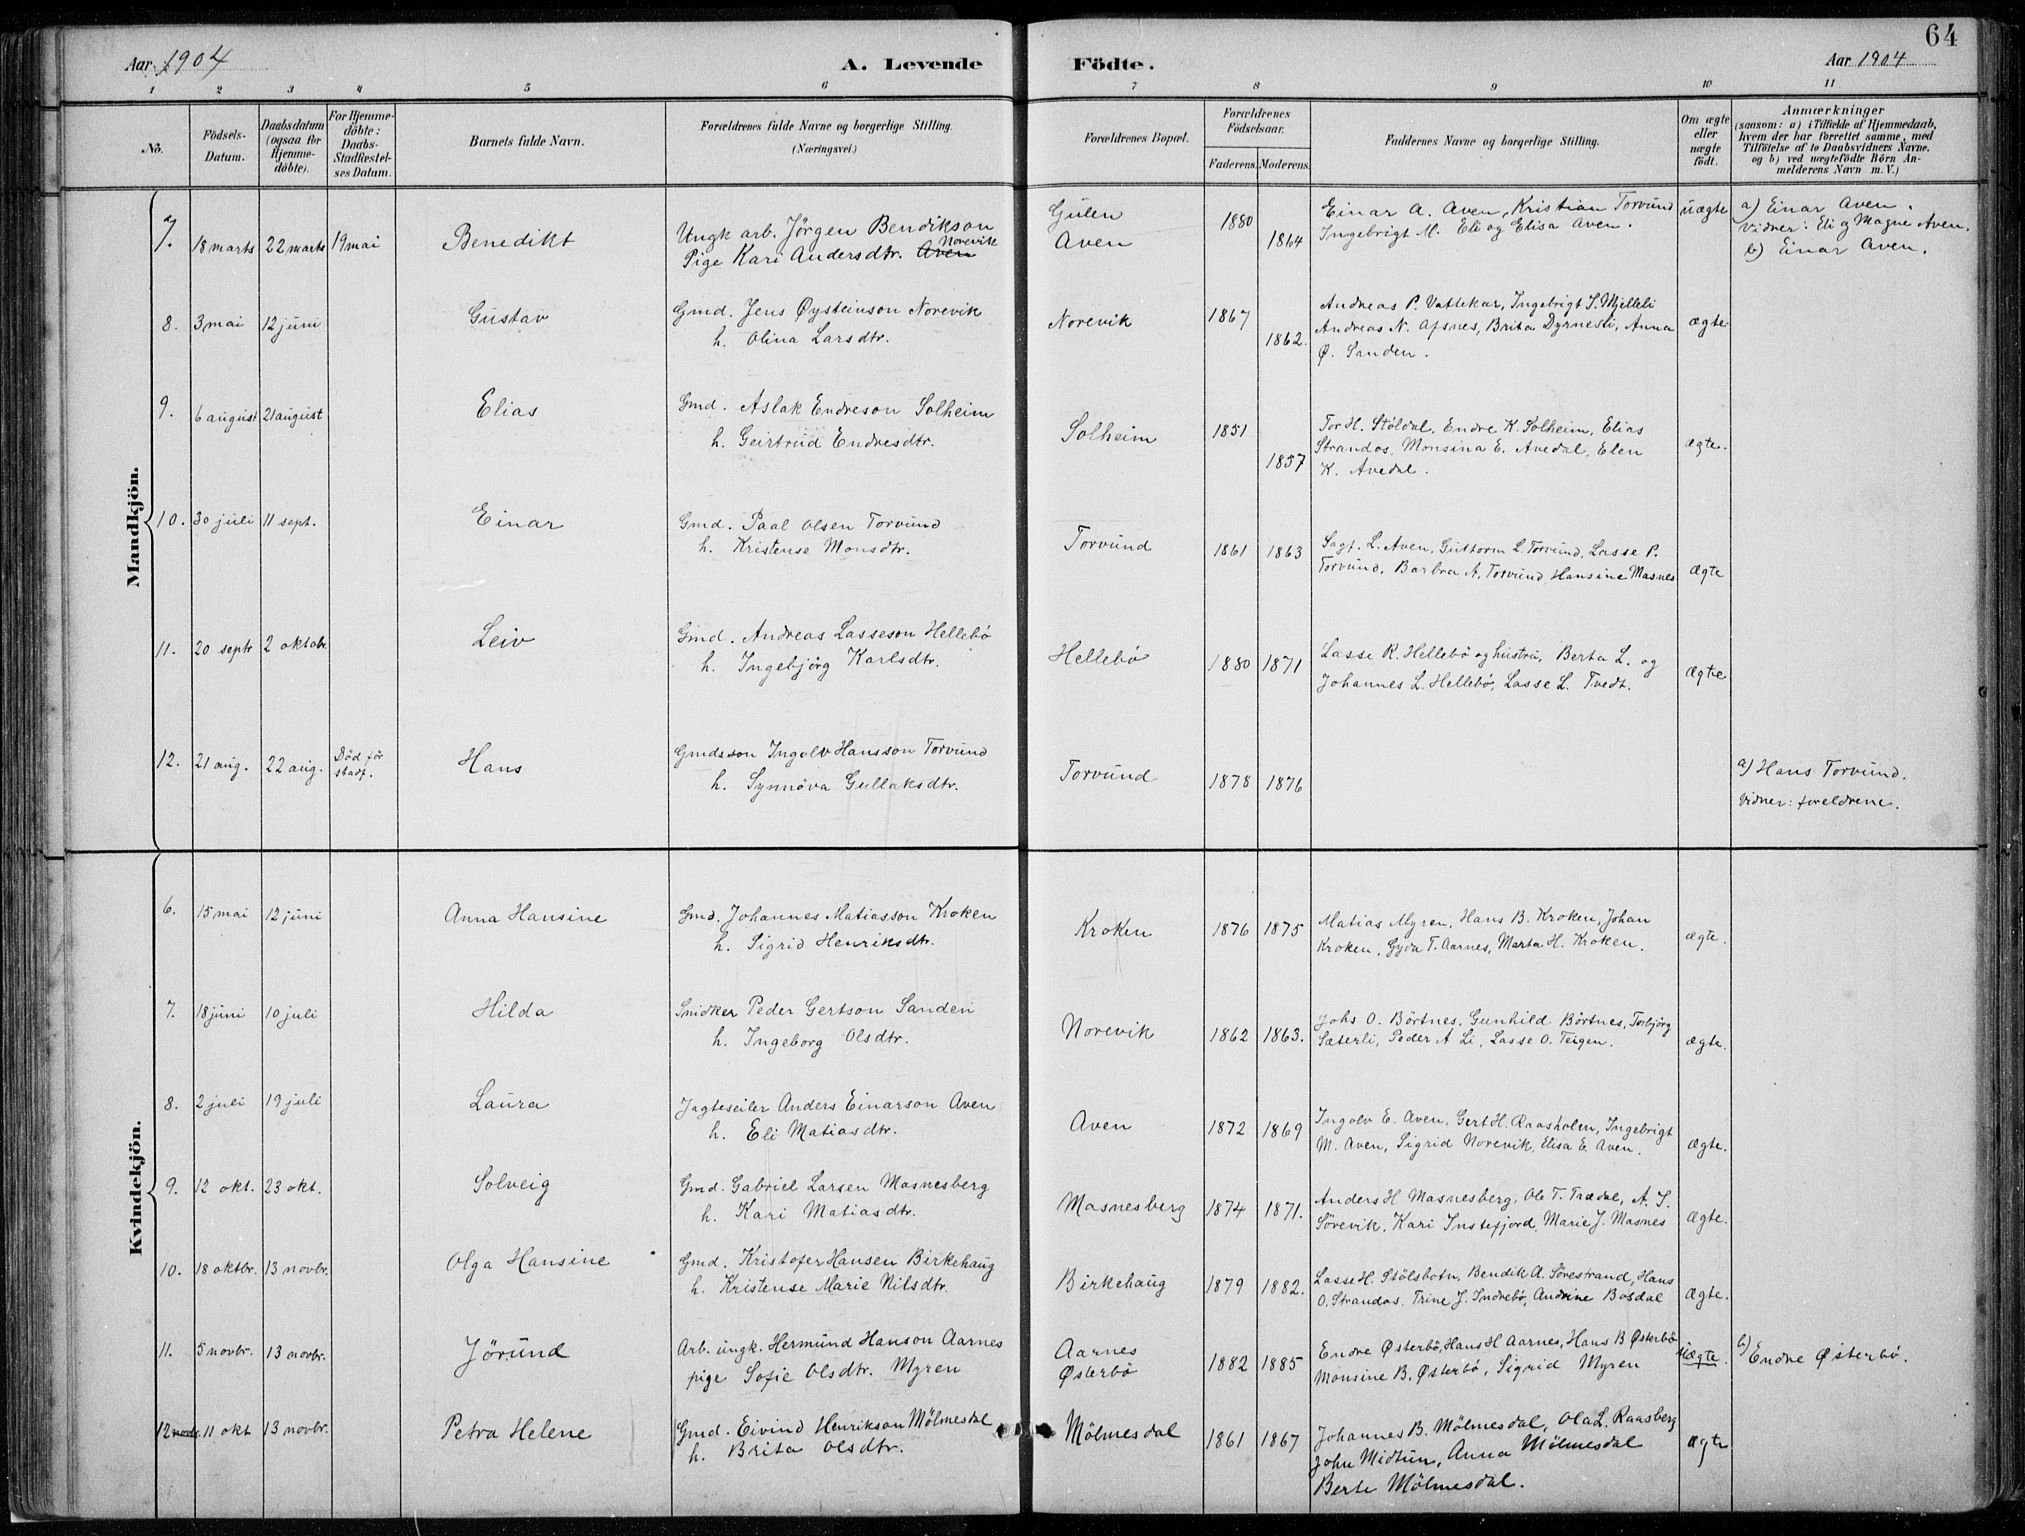 64
Aar 1904
A. Levende Födte.
Aar 1904
1 2 3 4 5 6 7 8 9 10 11
No.
Födsels-Datum.
Daabsdatum (ogsaa for Hjemme-döbte).
For Hjemme-döbte: Daabs-Stadfæstel-ses Datum.
Barnets fulde Navn.
Forældrenes fulde Navne og borgerlige Stilling.
(Næringsvei.)
Forældrenes Bopæl.
Forældrenes Födselsaar.
Faderens. Moderens.
Faddernes Navne og borgerlige Stilling.
Om ægte eller uægte födt.
Anmærkninger
(saasom: a) i Tilfælde af Hjemmedaab,
hvem der har forrettet samme, med
Tilföielse af to Daabsvidners Navne.
og b) ved uægtefödte Börn An-
melderens Navn m. V.)
Mandkjön.
7. 18 marts 22 marts 19 mai Benedikt
Ungk arb. Jörgen Bendikson Norevik
Pige Kari Andersdtr. Aven
Gulen
Aven
1880 1864
Einar A. Aven, Kristian Torvund
Ingebrigt M. Eli og Elisa Aven.
uægte
a) Einar Aven.
Vidner: Eli og Magne Aven.
b) Einar Aven.
8. 3 mai 12 juni Gustav
Gmd. Jens Øysteinson Norevik
h. Olina Larsdtr.
Norevik 1867 1862.
Andreas P. Vattekar, Ingebrigt S. Mjelleli
Andreas N. Apsnes, Brita Dyrnesli, Anna
Ø. Sanden.
ægte
9. 6 august 21 august Elias
Gmd. Aslak Endreson Solheim
h. Geirtrud Endresdtr.
Solheim 1851 1857
Tor H. Stöldal, Endre K. Solheim, Elias
Strandos, Monsina E. Avedal, Elen
K. Avedal.
ægte.
10. 30 juli 11 sept. Einar
Gmd. Paal Olsen Torvund
h. Kristense Monsdtr.
Torvund 1861 1863
Sagt. L. Aven, Guttorm L. Torvund, Lasse P.
Torvund, Barbra A. Torvund, Hansine Masnes
ægte
11. 20 septr 2 oktobr. Leiv
Gmd. Andreas Lasseson Hellebö
h. Ingebjörg Karlsdtr.
Hellebö 1880 1871
Lasse R. Hellebö og hustru, Berta L. og
Johannes L. Hellebö, Lasse L. Tvedt.
ægte
12. 21 aug. 22 aug. Död för stadf. Hans
Gmdsson Ingolv Hansson Torvund
h. Synnöva Gullaksdtr.
Torvund 1878 1876
a) Hans Torvund.
Vidner: foreldrene.
Kvindekjön.
6. 15 mai 12 juni Anna Hansine
Gmd. Johannes Matiasson Kroken
h. Sigrid Henriksdtr.
Kroken 1876 1875
Matias Myren, Hans B. Kroken, Johan
Kroken, Gyda T. Aarnes, Marta H. Kroken.
ægte.
7. 18 juni 10 juli Hilda
Snidker Peder Gertson Sanden
h. Ingeborg Olsdtr.
Norevik 1862 1863.
Johs O. Börtnes, Gunhild Börtnes, Torbjörg
Sæterli, Peder A Li, Lasse O. Teigen.
ægte.
8. 2 juli 19 juli Laura
Jagteseiler Anders Einarson Aven
h. Eli Matiasdtr.
Aven 1872 1869
Ingolv E. Aven, Gert H. Raasholm, Ingebrigt
M. Aven, Sigrid Norevik, Elisa E. Aven.
ægte.
9. 12 okt. 23 okt. Solveig
Gmd. Gabriel Larsen Masnesberg
h. Kari Matiasdtr.
Masnesberg 1874 1871.
Anders H Masnesberg, Ole T. Trædal, A. S.
Sörevik, Kari Instefjord, Marie J. Masnes
ægte.
10. 18 oktbr. 13 novbr. Olga Hansine
Gmd. Kristofer Hansen Birkehaug
h. Kristense Marie Nilsdtr.
Birkehaug 1879 1882.
Lasse H Stölsbotn, Bendik A. Sörestrand, Hans
O. Strandos. Trine J. Indrebö, Andrine Bosdal
ægte.
11. 5 novbr. 13 novbr. Jörund
Arb. ungk. Hermund Hanson Aarnes
pige Sofie Olsdtr. Myren
Aarnes
Østerbö
1882 1885
Endre Østerbö, Hans H Aarnes, Hans B Østerbö
Monsine B. Østerbö, Sigrid Myren
uægte.
b) Endre Østerbö.
12 novbr. 11 okt 13 novbr. Petra Helene
Gmd. Eivind Henrikson Mölmesdal
h. Brita Olsdtr.
Mölmesdal 1861 1867
Johannes B. Mölmesdal, Ola L. Raasberg
John Midtun, Anna Mölmesdal
Berte Mölmesdal.
ægte